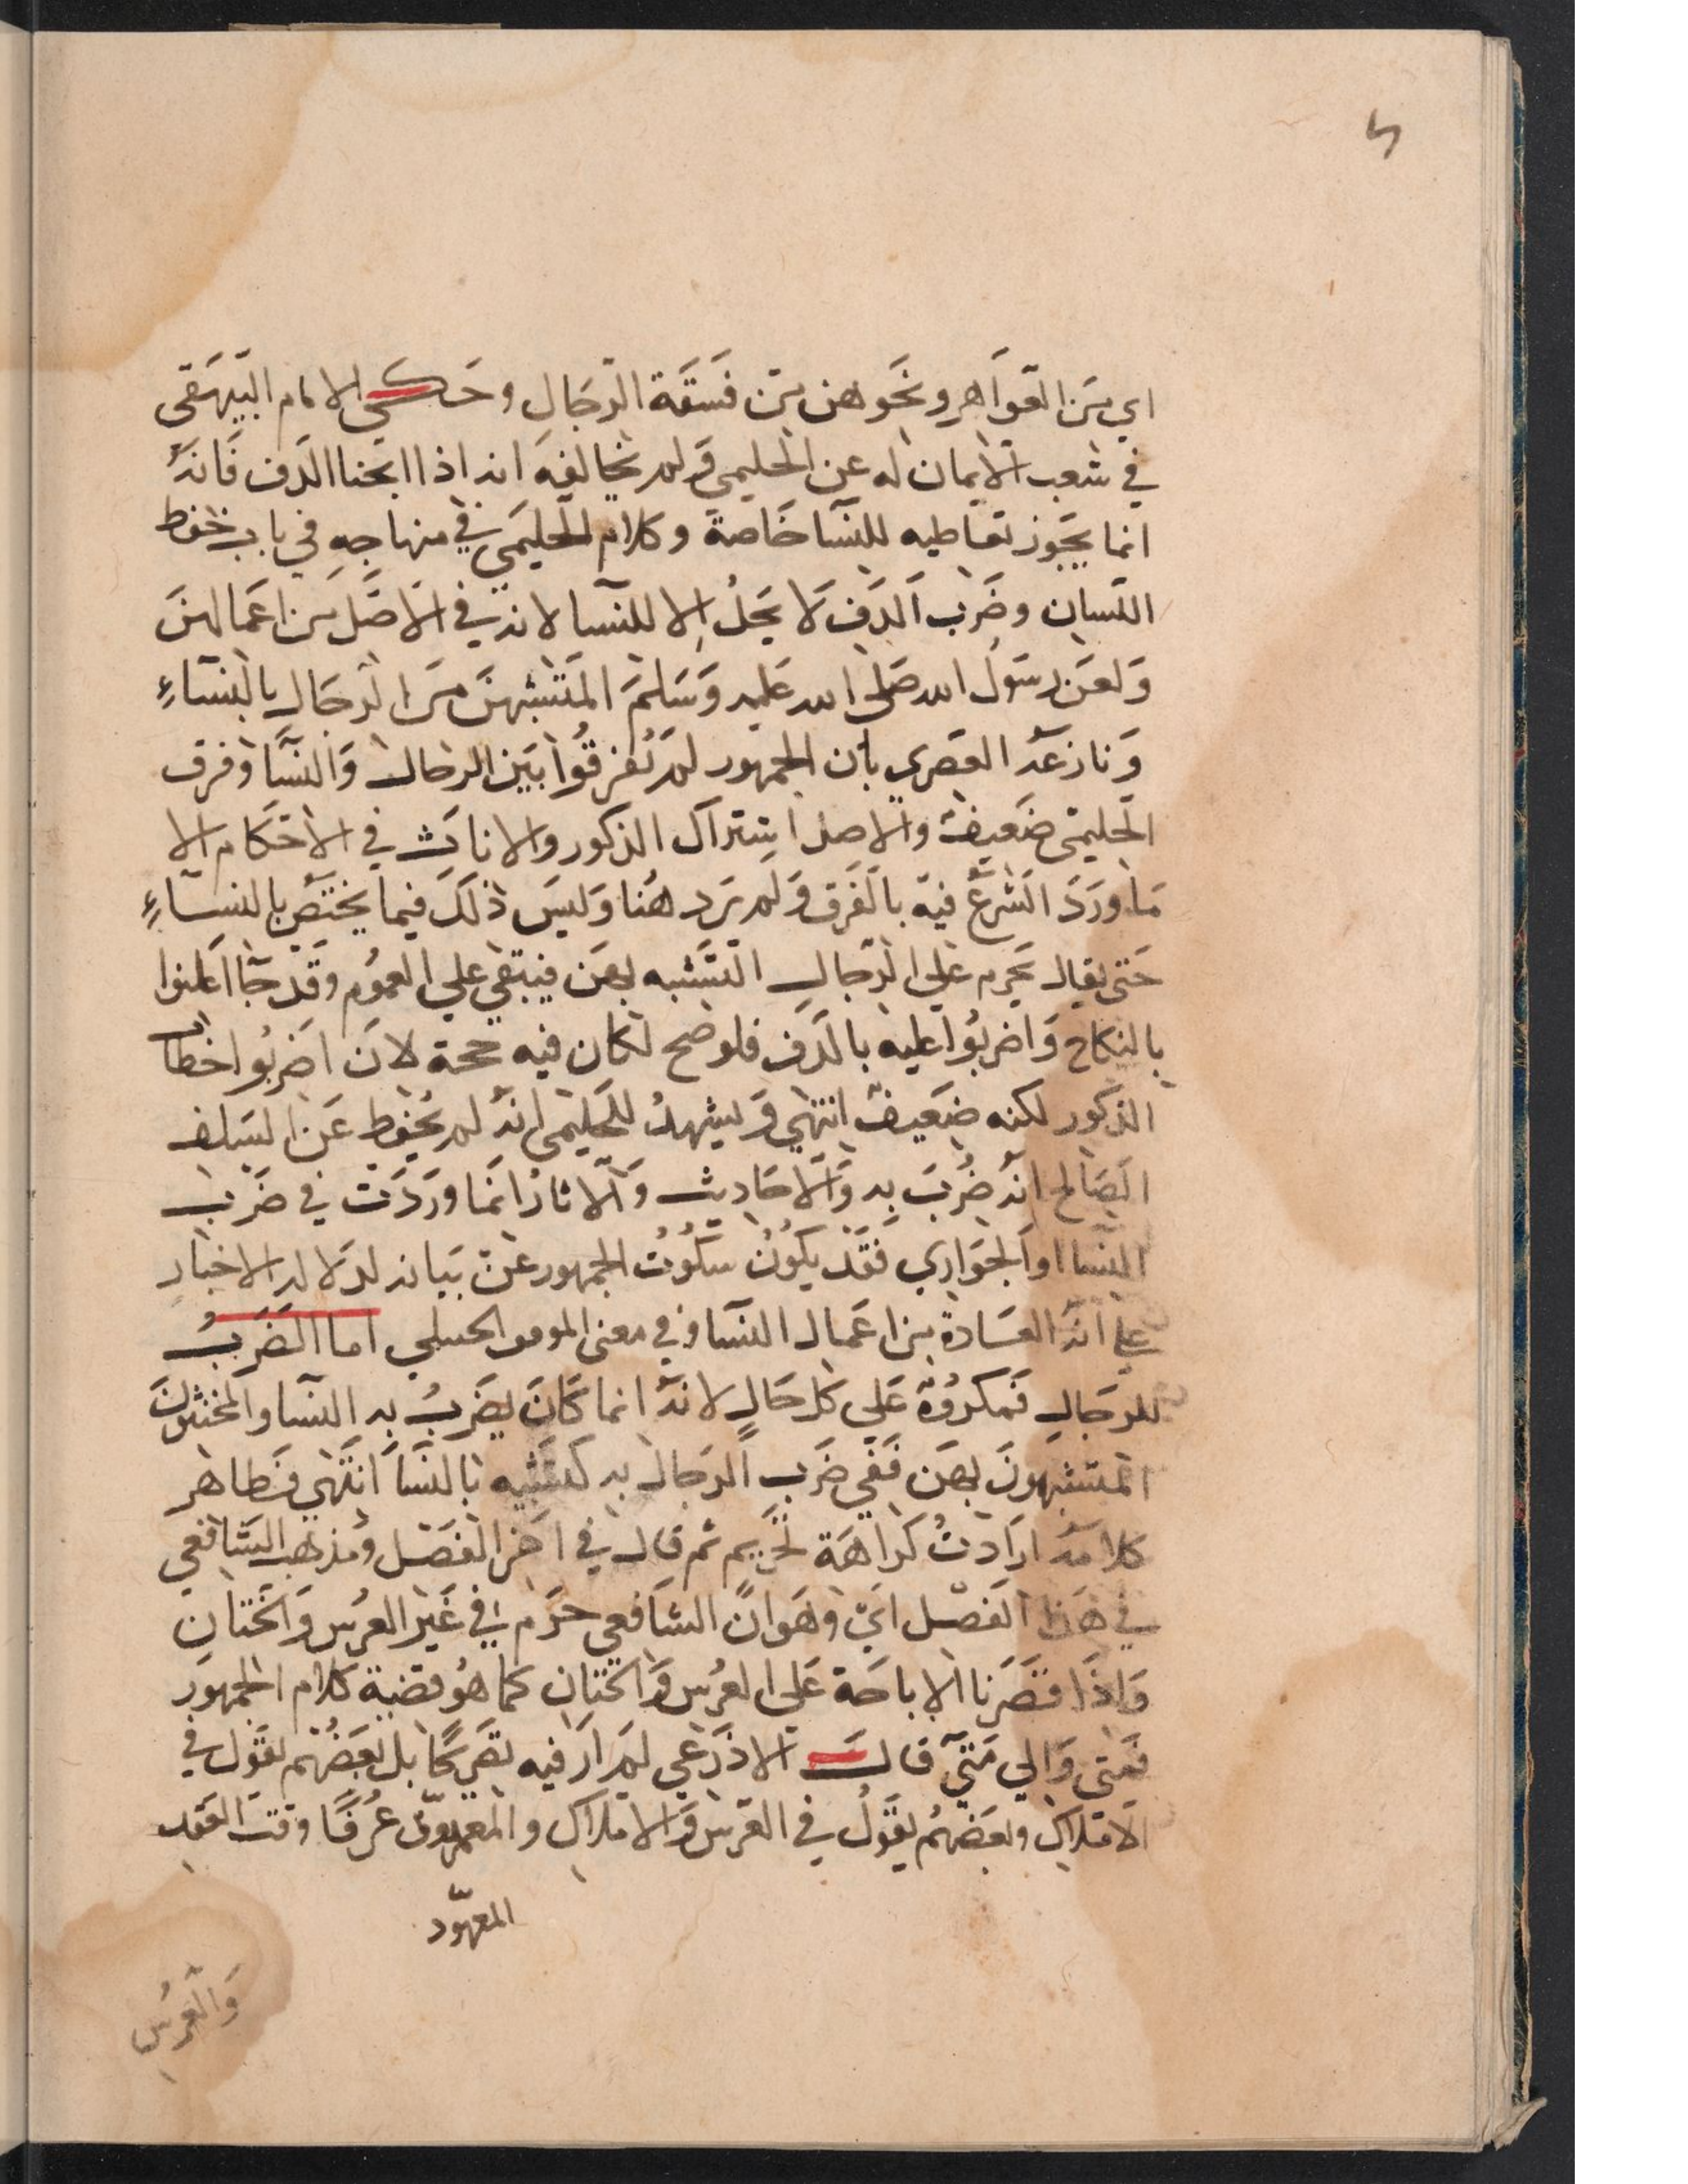 اي من العواهر ونحوهن من فسقة الرجال وحكى الامام البيهقى
في شعب الايمان له عن الحليمي ولم يخالفه انه اذا ابحنا الدف فانه
انما يجوز تعاطيه للنسا خاصة وكلام الحليمي في منهاجه في باب حفظ
اللسان وضرب الدف لا يحل الا للنسا لانه في الاصل من اعمالهن
ولعن رسول الله صلى الله عليه وسلم المتشبهين من الرجال بالنساء
ونازعه القصرى بان الجمهور لم يفرقوا بين الرجال والنسا وفرق
الحليمى ضعيف والاصل اشتراك الذكور والاناث في الاحكام الا
ما ورد الشرع فيه بالفرق ولم يرد هنا وليس ذلك فيما يختص بالنساء
حتى يقال يحرم على الرجال التشبه بهن فيبقي علي العموم وقد جا اعلنوا
بالنكاح واضربوا عليه بالدف فلو صح لكان فيه حجة لان اضربوا خطاب
الذكور لكنه ضعيف انتهي ويشهد للحليمى انه لم يحفظ عن السلف
الصالح انه ضرب به والاحاديث والاثار انما وردت في ضرب
النسا او الجواري فقد يكون سكوت الجمهور عن بيانه لدلالة الاخبار
على انه العادة من اعمال النسا وفي مغنى الموفق الحنبلي اما الضرب
للرجال فمكروه على كل حال لانه انما كان يضرب به النسا والمخنثون
المتشبهون بهن ففي ضرب الرجال به تشبيه بالنسا انتهي فظاهر
كلامه ارادت كراهة تحريم ثم قال في اخر الفصل ومذهب الشافعي
في هذا الفصل اي وهو ان الشافعي حرم في غير العرس والختان
واذا قصرنا الاباحة على العرس والختان كما هو قضية كلام الجمهور
فمتى والي متى قال الاذرعي لم ار فيه تصريحا بل بعضهم يقول في
الاملاك وبعضهم يقول في العرس والاملاك والمعهود عرفا وقت العقد
المعهود
والعرس